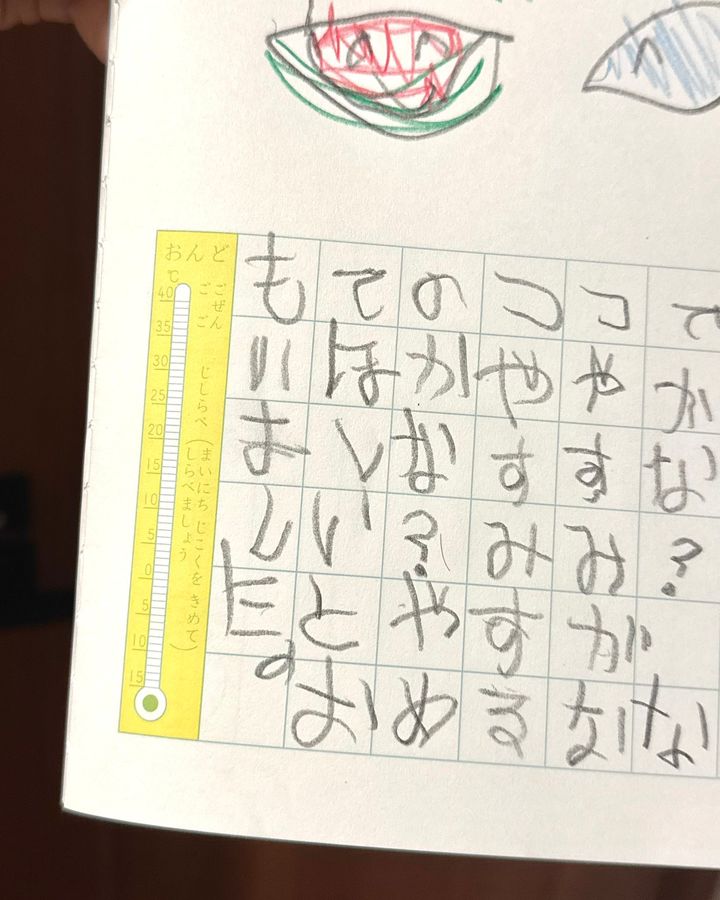 かな? な
つやすみがな
つやすみする
のかな?やめ
てほしいとお
もいました。
おんど
℃
ごぜん
ごご
じしらべ
(まいにち じこくを きめて
しらべましょう)
40
35
30
25
20
15
10
5
0
5
10
15